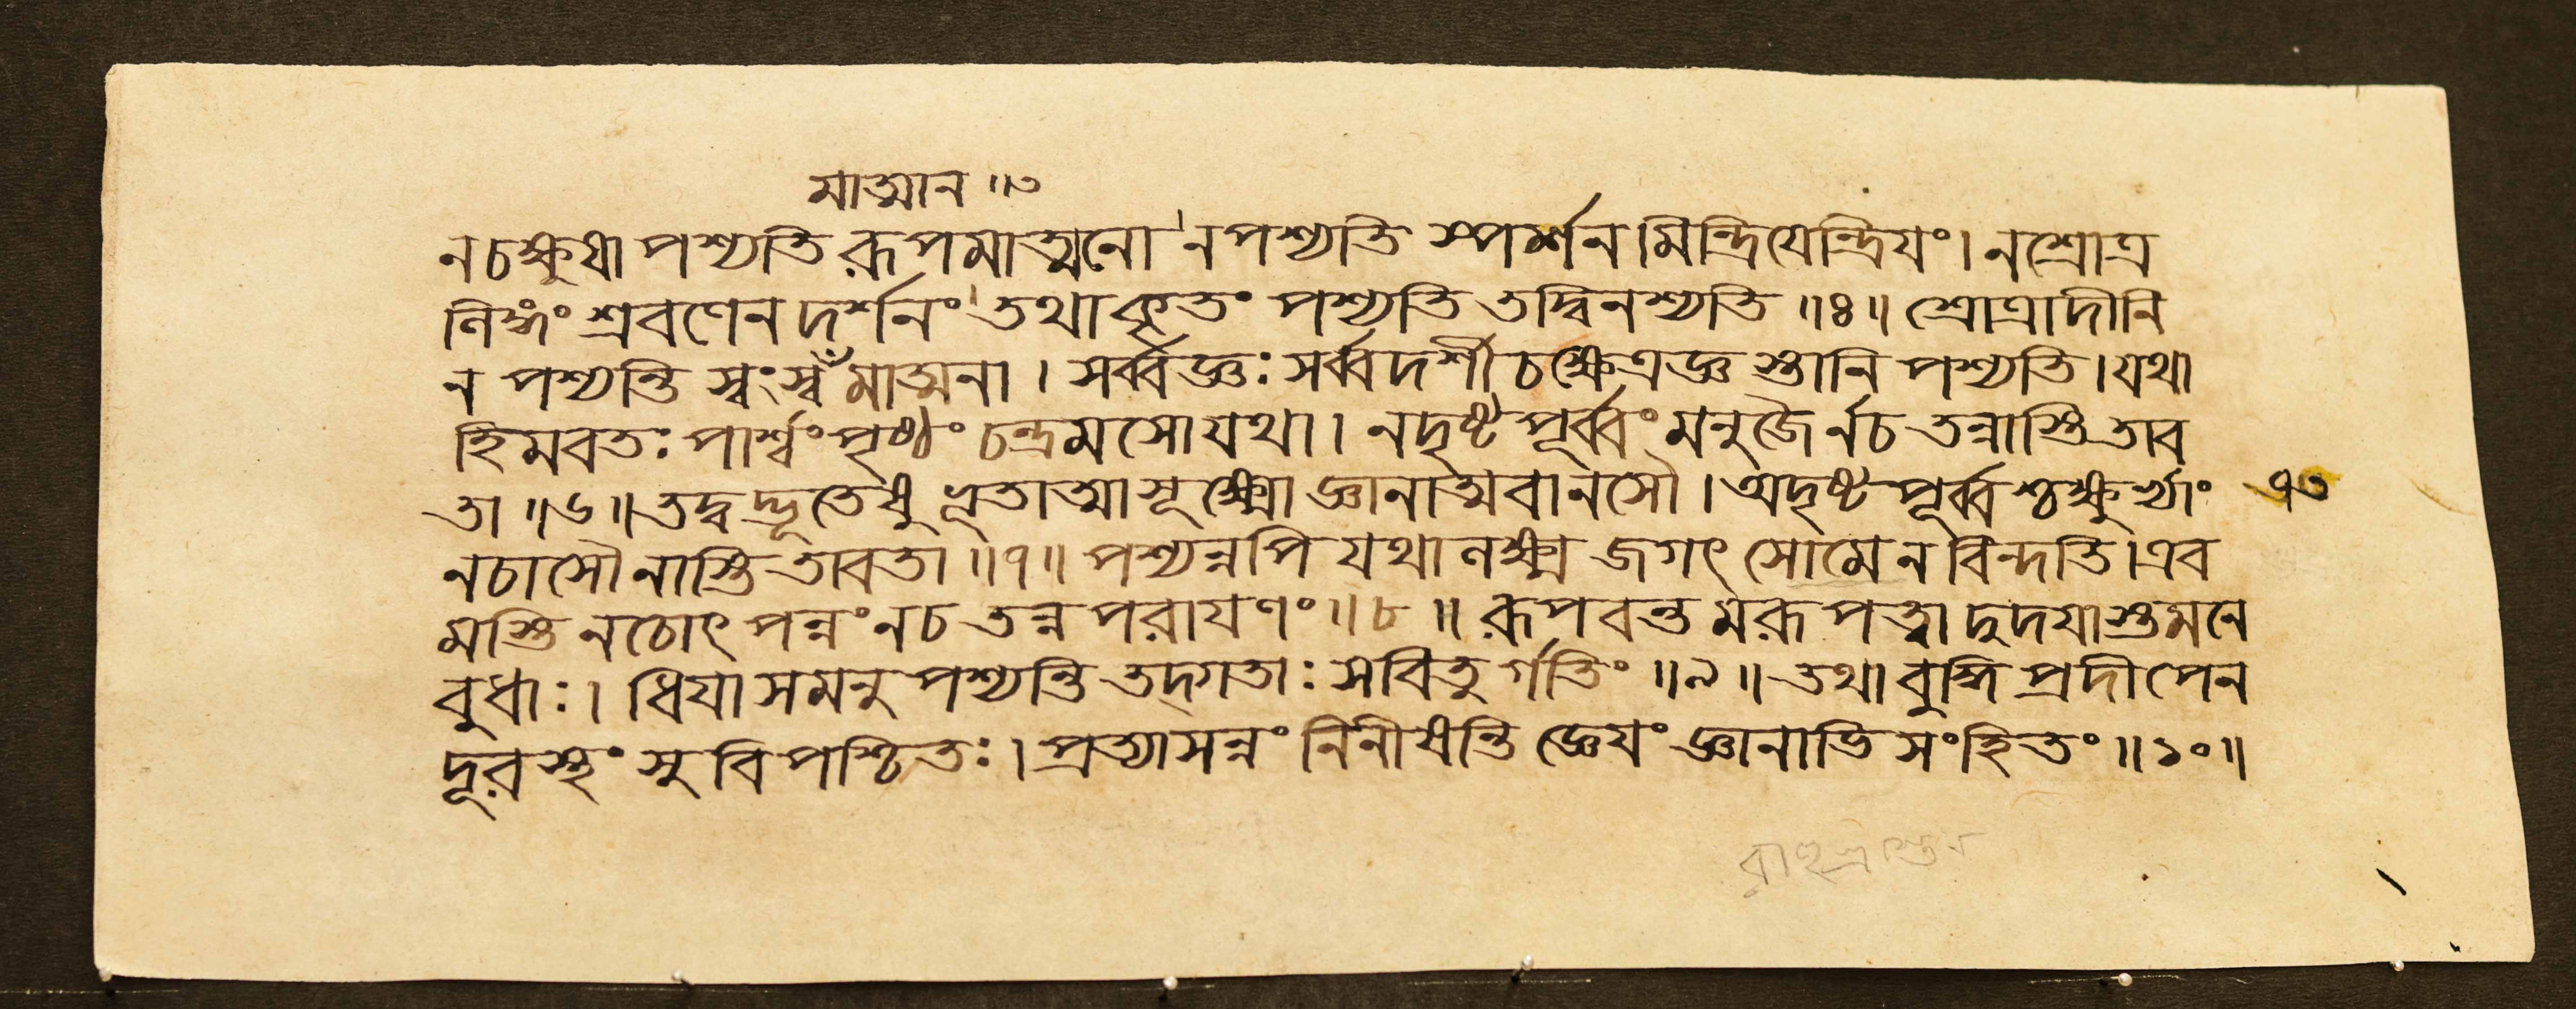 মাত্মান ॥৩
ন চক্ষুষা পশ্যতি রূপমাত্মনো ন পশ্যতি স্পর্শনমিন্দ্রিযেন্দ্রিযং। ন শ্রোত্র
লিঙ্গং শ্রবণেন দর্শনং তথা কৃতং পশ্যতি তদ্বিনশ্যতি ॥৪॥ শ্রোত্রাদীনি
ন পশ্যন্তি স্বং স্বঁমাত্মনা। সর্ব্বজ্ঞঃ সর্ব্বদর্শী চ ক্ষেত্রজ্ঞ স্তানি পশ্যতি। যথা
হিমবতঃ পার্শ্বং পৃষ্ঠং চন্দ্রমসো যথা। ন দৃষ্টপূর্ব্বং মনুজৈর্ন চ তন্নাস্তি তাব
তা ॥৬॥ তদ্বদ্ভূতেষু ভূতাত্মা সূক্ষ্মো জ্ঞানাত্মবানসৌ। অদৃষ্টপূর্ব্বশ্চক্ষুর্ভ্যাং ৭৩
ন চাসৌ নাস্তি তাবতা ॥৭॥ পশ্যন্নপি যথা লক্ষ্ম জগৎ সোমে ন বিন্দতি। এব
মস্তি ন চোৎপন্নং ন চ তন্ন পরাযণং ॥৮॥ রূপবন্তমরূপত্বাদুদযাস্তমনে
বুধাঃ। ধিযা সমনুপশ্যন্তি তদ্গতাঃ সবিতুর্গতিং ॥৯॥ তথা বুদ্ধিপ্রদীপেন
দূরস্থং সুবিপশ্চিতঃ। প্রত্যাসন্নং নিনীষন্তি জ্ঞেযং জ্ঞানাভিসংহিতং ॥১০॥